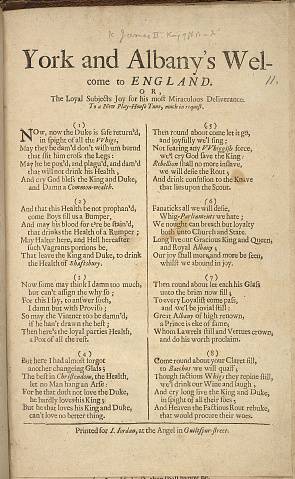 K James II. King
11.
York and Albany's Wel-
come to ENGLAND.
OR,
The Loyal Subjects Joy for his most Miraculous Deliverance.
To a New Play-House Tune, much in request.
(1)
NOw, now the Duke is safe return'd,
in spight of all the VVhigs,
May they be dam'd don't wish him burnd
that sit him cross the Legs:
May he be pox'd, and plagu'd, and dam'd
that will not drink his Health,
And cry God bless the King and Duke,
and Damn a Common-wealth.
(2)
And that this Health be not prophan'd,
come Boys fill us a Bumper,
And may his blood for e're be stain'd,
that drinks the Health of a Rumper;
May Hakes here, and Hell hereafter
such Vagrants portions be,
That leave the King and Duke, to drink
the Health of Shaftsbury.
(3)
Now some may think I damn too much,
but can't assign the why so;
For this I say, to answer such,
I damn but with Proviso;
So may the Vintner too be damn'd,
if he has't drawn the best;
Then here's the loyal parties Health,
a Pox of all the rest.
(4)
But here I had almost forgot
another changeing Glass;
The best in Christendom, the Health,
let no Man hang an Arse:
For he that doth not love the Duke,
he hardly loves his King;
But he that loves his King and Duke,
can't love no better thing.
(5)
Then round about come let it go,
and joyfully we'l sing;
Not fearing any VVhiggish force,
we'l cry God save the King:
Rebellion shall no more inslave,
we will defie the Rout;
And drink confusion to the Knave
that lies upon the Scout.
(6)
Fanaticks all we will defie,
Whig-Parliaments we hate;
We nought can breach but loyalty
both unto Church and State.
Long live our Gracious King and Queen,
and Royal Albany;
Our joy shall more and more be seen,
whilst we abound in joy.
(7)
Then round about let each his Glass
unto the brim now fill;
To every Loyalist come pass,
and we'l be jovial still:
Great Albany of high renown,
a Prince is else of fame,
Whom Lawrels still and Vertues crown,
and do his worth proclaim.
(8)
Come round about your Claret fill,
to Bacchus we will quaff;
Though factious Whigs they repine still,
we'l drink our Wine and laugh;
And cry long live the King and Duke,
in spight of all their foes;
And Heaven the Factious Rout rebuke,
that would procure their woes.
Printed for I. Jordan, at the Angel in Guiltspur-street.